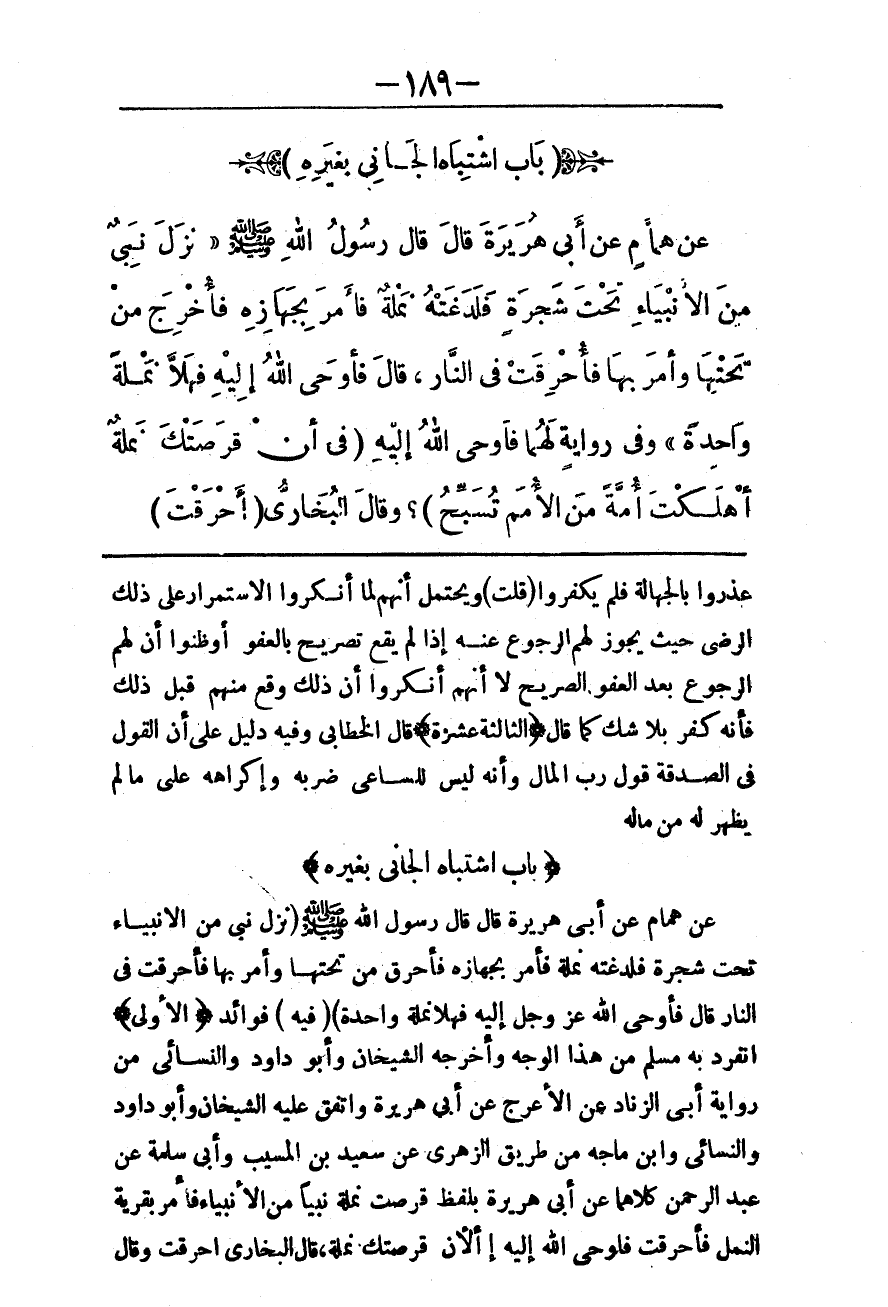 — ١٨٩ —
( بَاب اشْتِبَاه الجَـانِي بغَيَرِهِ )
عن همأمٍ عن أَبى هرَيَرَةَ قالَ قال رسُولُ اللهِ ﷺ « نزَلَ نَبِىٌّ
مِنَ الأَنْبْيَاءِ تحْتَ شَجرَةٍ فَلَدَغَتْهُ نمْلةٌ فأَمرَ بِجَهَازِه فأُخْرِجَ منْ
تحْتِهَا وأمرَ بهَا فأُحْرِقَتْ فى النَّار ، قالَ فأوحَى اللهُ إليْهِ فهلاَّ نمْـلةً
واَحِدةً » وفى روايةٍ لَهُما فاَوحى اللهُ إليْهِ ( فى أَن قرَصَتْكَ نملةٌ
أهْلَـكْتَ أُمَّةً منَ الأُمَم تُسَبِّحُ ) ؟ وقالَ البُخَارىُّ ( أَحْرَقْتَ )
عذروا بالجهالة فلم يكفروا (قلت) ويحتمل أنهم لما أنـكروا الاستمرار على ذلك
الرضى حيث يجوز لهم الرجوع عنـه إذا لم يقع تصريح بالعفو أوظنوا أن لهم
الرجوع بعد العفو الصريح لا أنهم أنـكروا أن ذلك وقع منهم قبل ذلك
فأنه كفر بلا شك كما قال ﴿الثالثة عشرة﴾ قال الخطابى وفيه دليل على أن القول
فى الصـدقة قول رب المال وأنه ليس للسـاعى ضربه وإكراهه على مالم
يظهر له من ماله
﴿ باب اشتباه الجانى بغيره ﴾
عن همام عن أبـى هريرة قال قال رسول الله ﷺ (نزل نبي من الانبيـاء
تحت شجرة فلدغته نملة فأمر بجهازه فأحرق من تحتهـا وأمر بها فأحرقت فى
النار قال فأوحى الله عز وجل إليه فهلا نملة واحدة) ( فيه ) فوائد ﴿ الأولى ﴾
انفرد به مسلم من هذا الوجه وأخرجه الشيخان وأبو داود والنسـائى من
رواية أبـى الزناد عن الأعرج عن أبي هريرة واتفق عليه الشيخان وأبو داود
والنسائى وابن ماجه من طريق الزهرى عن سعيد بن المسيب وأبى سلمة عن
عبد الرحمن كلاهما عن أبى هريرة بلفظ قرصت نملة نبياً من الأنبياء فأمر بقرية
النمل فأحرقت فاوحى الله إليه إ ألأن قرصتك نملة، قال البخارى احرقت وقال